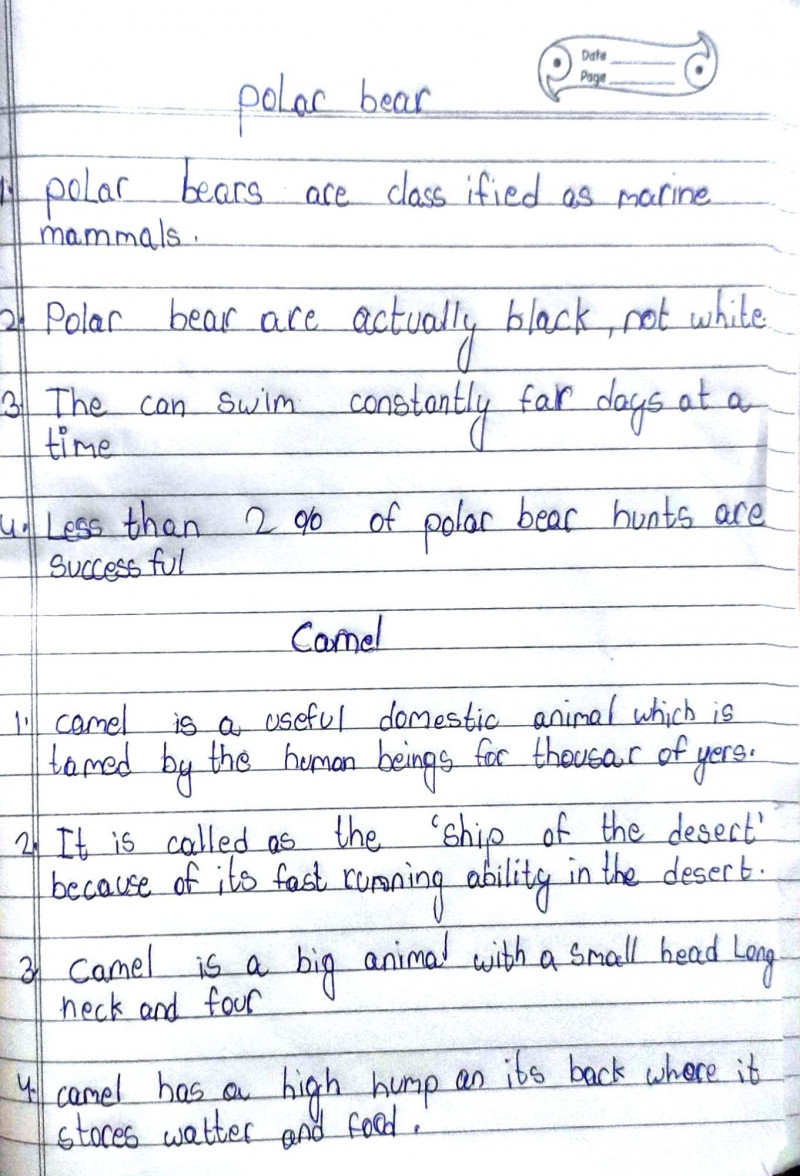 Date
Page
polar bear
1. polar bears are class ified as marine
mammals.
2. Polar bear are actually black, not white.
3. The can swim constantly far days at a
time
4. Less than 2 % of polar bear hunts are
success ful
Camel
1. camel is a useful domestic animal which is
tamed by the human beings for thousar of yers.
2. It is called as the 'ship of the desert'
because of its fast running ability in the desert.
3. Camel is a big animal with a small head Long
neck and four
4. camel has a high hump an its back where it
stores watter and food.